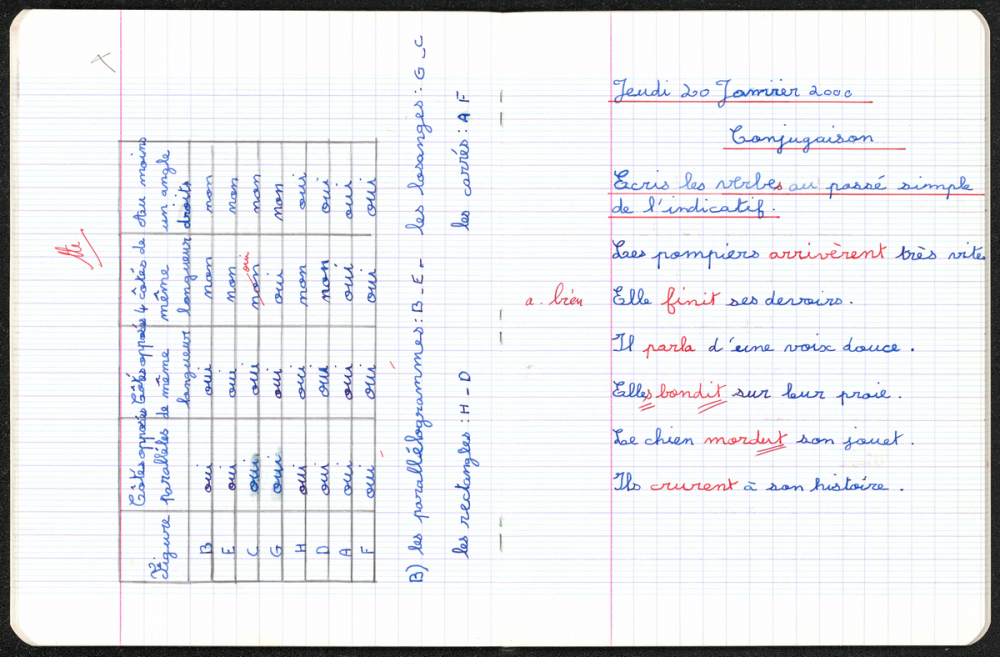 Côtés opposés Côtés opposés 4 côtés de Au moins
Figure Parallèles de même même un angle
longueur longueur droits
B oui oui non non
E oui oui non non
C oui oui non oui non
G oui oui oui non
H oui oui non oui
D oui oui non oui
A oui oui oui oui
F oui oui oui oui
B) les parallélogrammes : B - E - les losanges : G - C
les rectangles : H - D les carrés : A F
Jeudi 20 Janvier 2000
Conjugaison
Ecris les verbes au passé simple
de l'indicatif.
Les pompiers arrivèrent très vite
a. bien
Elle finit ses devoirs.
Il parla d'une voix douce.
Elles bondit sur leur proie.
Le chien mordut son jouet.
Ils crurent à son histoire.